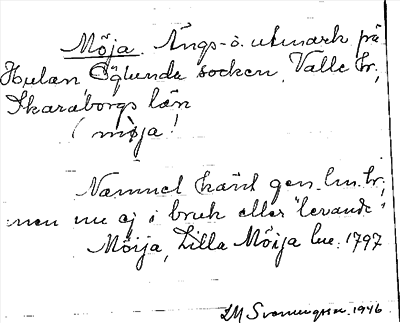 Möja. Ängs- o. utmark på
Hulan, Öglunda socken, Valle hr,
Skaraborgs län
(möja!
Namnet känt gen. lm. hr,
men nu ej i bruk eller "levande"
Möija, Lilla Möija lm. 1797
1946